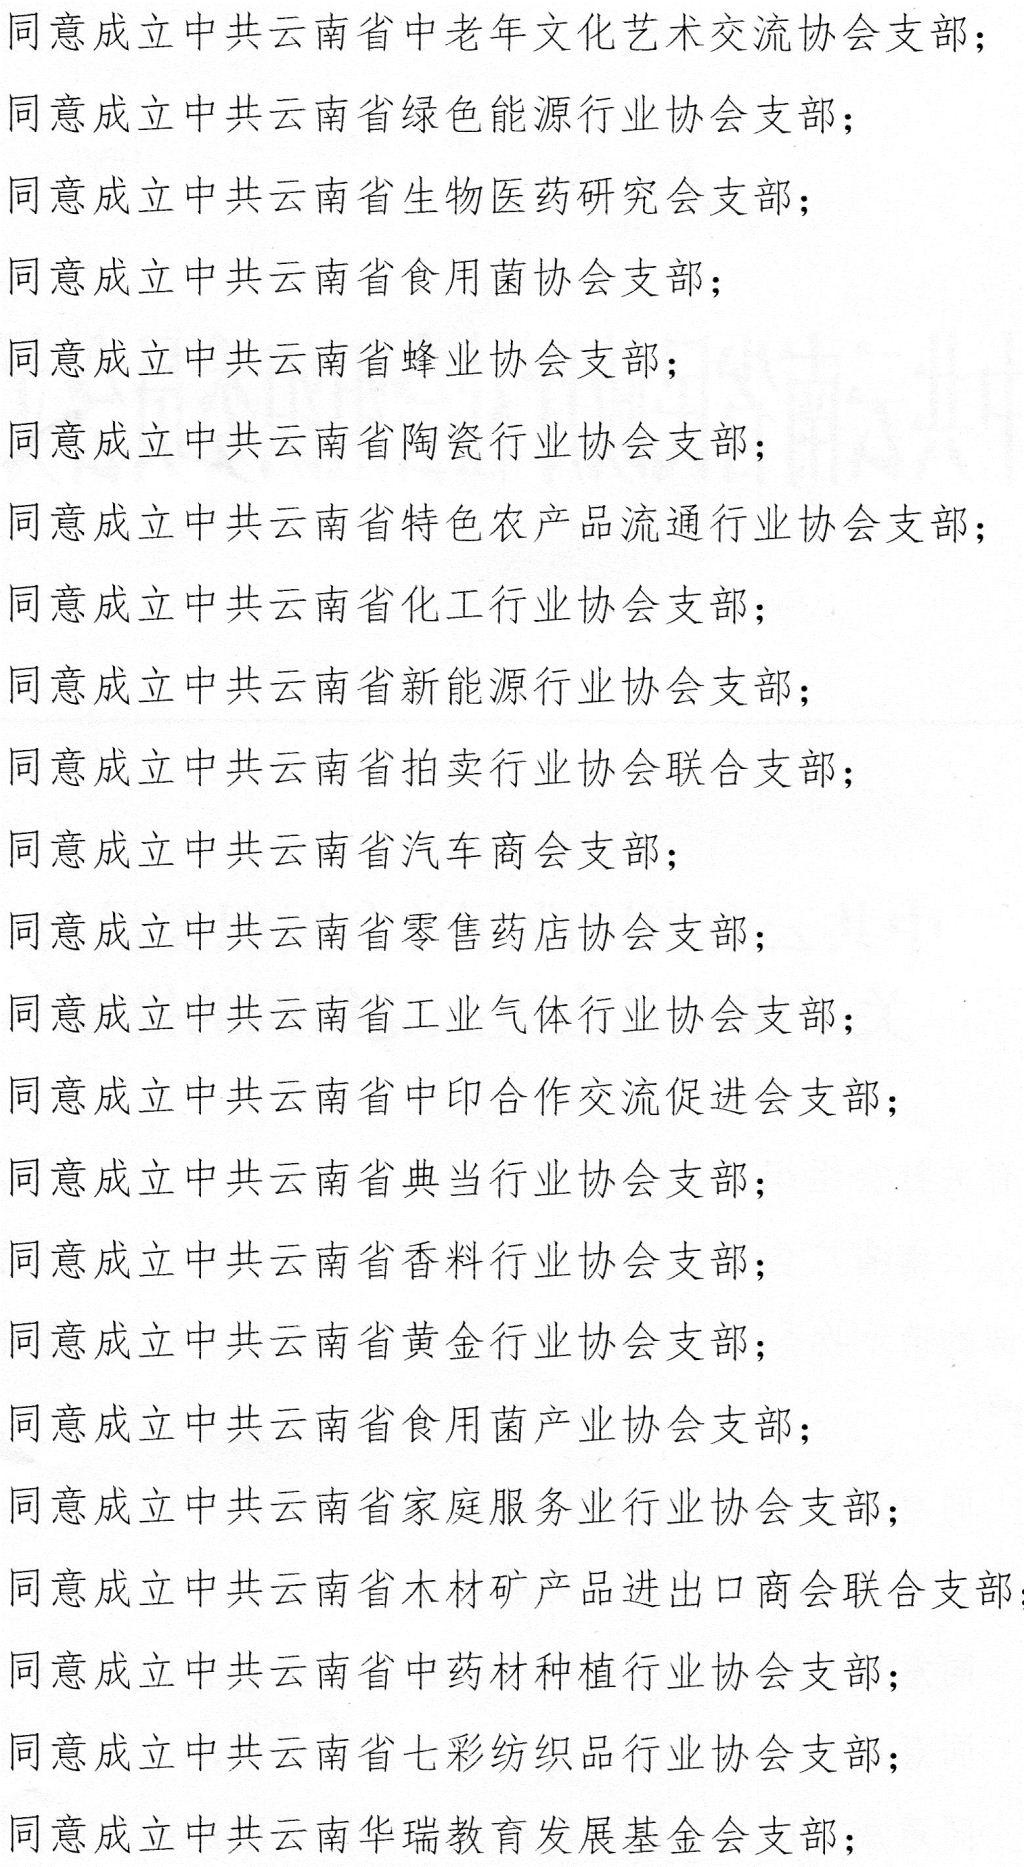 同意成立中共云南省中老年文化艺术交流协会支部；
同意成立中共云南省绿色能源行业协会支部；
同意成立中共云南省生物医药研究会支部；
同意成立中共云南省食用菌协会支部；
同意成立中共云南省蜂业协会支部；
同意成立中共云南省陶瓷行业协会支部；
同意成立中共云南省特色农产品流通行业协会支部；
同意成立中共云南省化工行业协会支部；
同意成立中共云南省新能源行业协会支部；
同意成立中共云南省拍卖行业协会联合支部；
同意成立中共云南省汽车商会支部；
同意成立中共云南省零售药店协会支部；
同意成立中共云南省工业气体行业协会支部；
同意成立中共云南省中印合作交流促进会支部；
同意成立中共云南省典当行业协会支部；
同意成立中共云南省香料行业协会支部；
同意成立中共云南省黄金行业协会支部；
同意成立中共云南省食用菌产业协会支部；
同意成立中共云南省家庭服务业行业协会支部；
同意成立中共云南省木材矿产品进出口商会联合支部；
同意成立中共云南省中药材种植行业协会支部；
同意成立中共云南省七彩纺织品行业协会支部；
同意成立中共云南华瑞教育发展基金会支部；